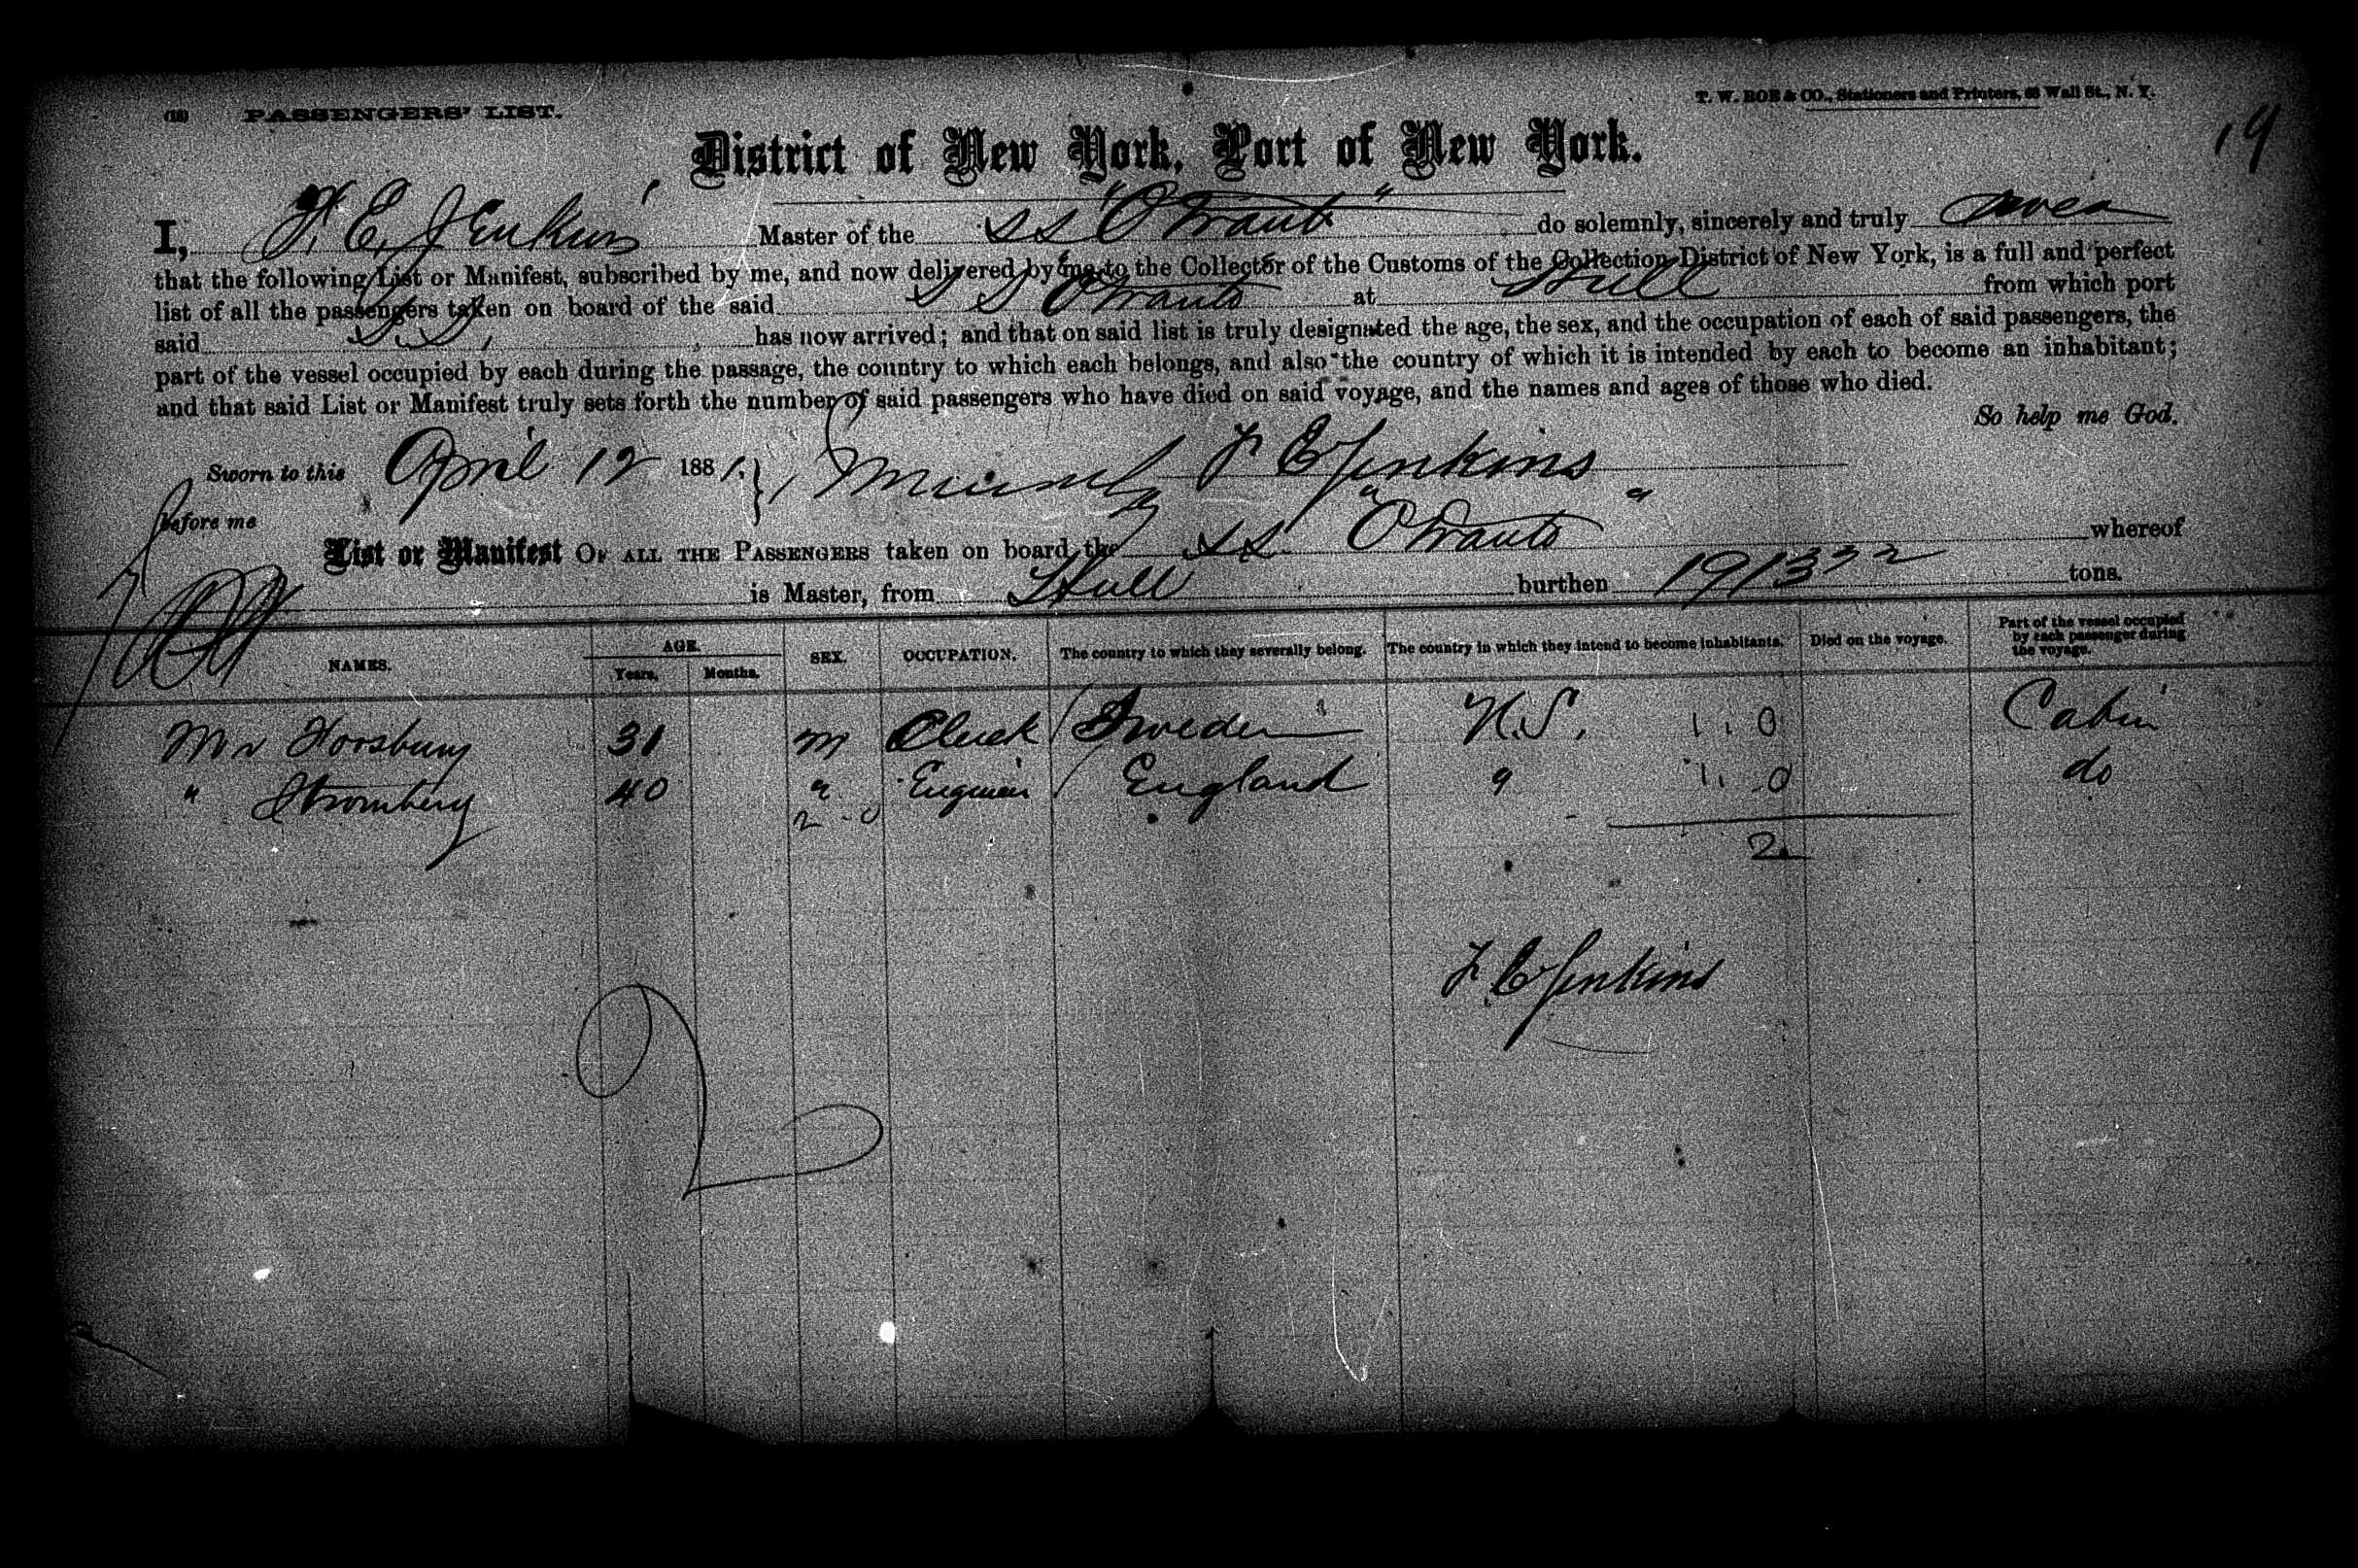 (18) PASSENGERS' LIST.
T. W. ROE & CO., Stationers and Printers, 63 Wall St., N. Y.
19
District of New York, Port of New York.
I, F. E. Jenkins Master of the SS "Otranto" do solemnly, sincerely and truly swear
that the following List or Manifest, subscribed by me, and now delivered by me to the Collector of the Customs of the Collection District of New York, is a full and perfect
list of all the passengers taken on board of the said SS Otranto at Hull from which port
said S.S, has now arrived; and that on said list is truly designated the age, the sex, and the occupation of each of said passengers, the
part of the vessel occupied by each during the passage, the country to which each belongs, and also the country of which it is intended by each to become an inhabitant;
and that said List or Manifest truly sets forth the number of said passengers who have died on said voyage, and the names and ages of those who died.
So help me God.
Sworn to this April 12 1881. F E Jenkins
before me
List or Manifest OF ALL THE PASSENGERS taken on board the SS "Otranto" whereof
is Master, from Hull burthen 1913 tons.
NAMES. AGE. Years. Months. SEX. OCCUPATION. The country to which they severally belong. The country in which they intend to become inhabitants. Died on the voyage. Part of the vessel occupied by each passenger during the voyage.
Mr Horsbury 31 M Clerk / Sweden U.S. 1 . 0 Cabin
" Stromberg 40 " Engineer / England " 1 . 0 do
2 - 0
2
F. E Jenkins
2